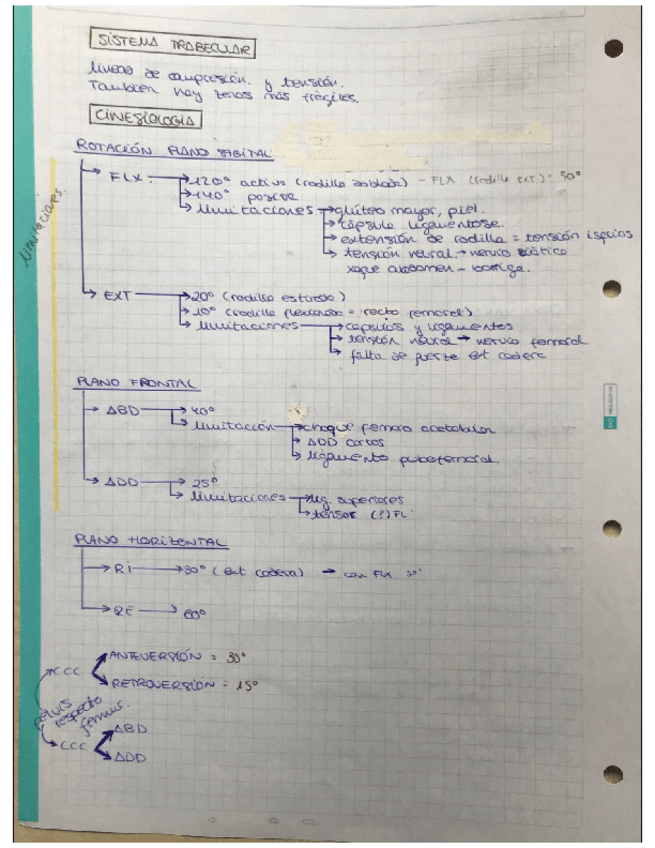 SISTEMA TRABECULAR
Líneas de compresión. y tensión.
También hay zonas más frágiles.
CINESIOLOGIA
ROTACIÓN PLANO SAGITAL
Limitaciones.
FLX. → 120° activo (rodilla doblada) - FLX (rodilla ext): 90°
→ 140° pasiva
→ limitaciones → glúteo mayor, piel.
→ cápsula ligamentosa.
→ extensión de rodilla = tensión isquios
→ tensión neural → nervio ciático
xoque abdomen - barriga.
EXT → 20° (rodilla estirada)
→ 10° (rodilla flexionada = recto femoral)
→ limitaciones → capsulas y ligamentos
→ tensión neural → nervio femoral
→ falta de fuerza ext cadera
PLANO FRONTAL
→ ABD → 40°
→ limitación → choque femoro acetabular
→ ADD cortos
→ ligamento pubofemoral
→ ADD → 25°
→ limitaciones → lig. superiores
→ tensor (?) FL
PLANO HORIZONTAL
→ RI → 30° (ext cadera) → con FLX
→ RE → 60°
CCC ANTEVERSIÓN = 30°
RETROVERSIÓN = 15°
pelvis
respecto
femur.
CCC ABD
ADD